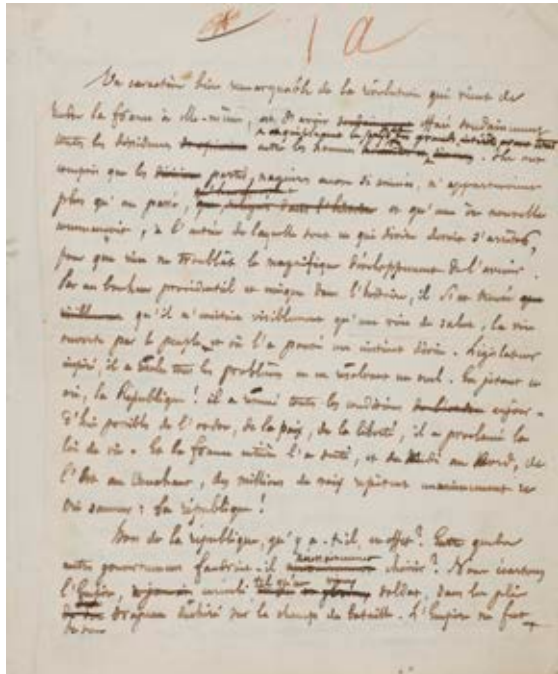 1 a
Un caractère bien remarquable de la révolution qui vient de
rendre la france à elle-même, est d'avoir effacé soudainement
toutes les dissidences entre les hommes
compris que les partis, naguères encore si animés, n'appartiennent
plus qu'au passé, et qu'une ère nouvelle
commençait, à l'entrée de laquelle tout ce qui divise devait s'arrêter,
pour que rien ne troublât le magnifique développement de l'avenir.
Par un bonheur providentiel et unique dans l'histoire, il s'est trouvé que
qu'il n'existait visiblement qu'une voie de salut, la voie
ouverte par le peuple, et où l'a poussé un instinct divin. Législateur
inspiré, il a tous les problèmes en en résolvant un seul. En jetant ce
cri, la République ! il a réuni toutes les conditions aujour-
d'hui possibles de l'ordre, de la paix, de la liberté, il a proclamé la
loi de vie. Et la france entière l'a , et du Midi au Nord, de
l'Est au Couchant, des millions de voix répètent unanimement ce
cri sauveur : la république !
Hors de la république, qu'y a-t-il, en effet ? Entre quels
autres gouvernemens faudrait-il choisir ? Nous écartons
l'Empire, tel qu'un vieux soldat, dans les plis
drapeau déchiré sur le champ de bataille. L'Empire ne fut